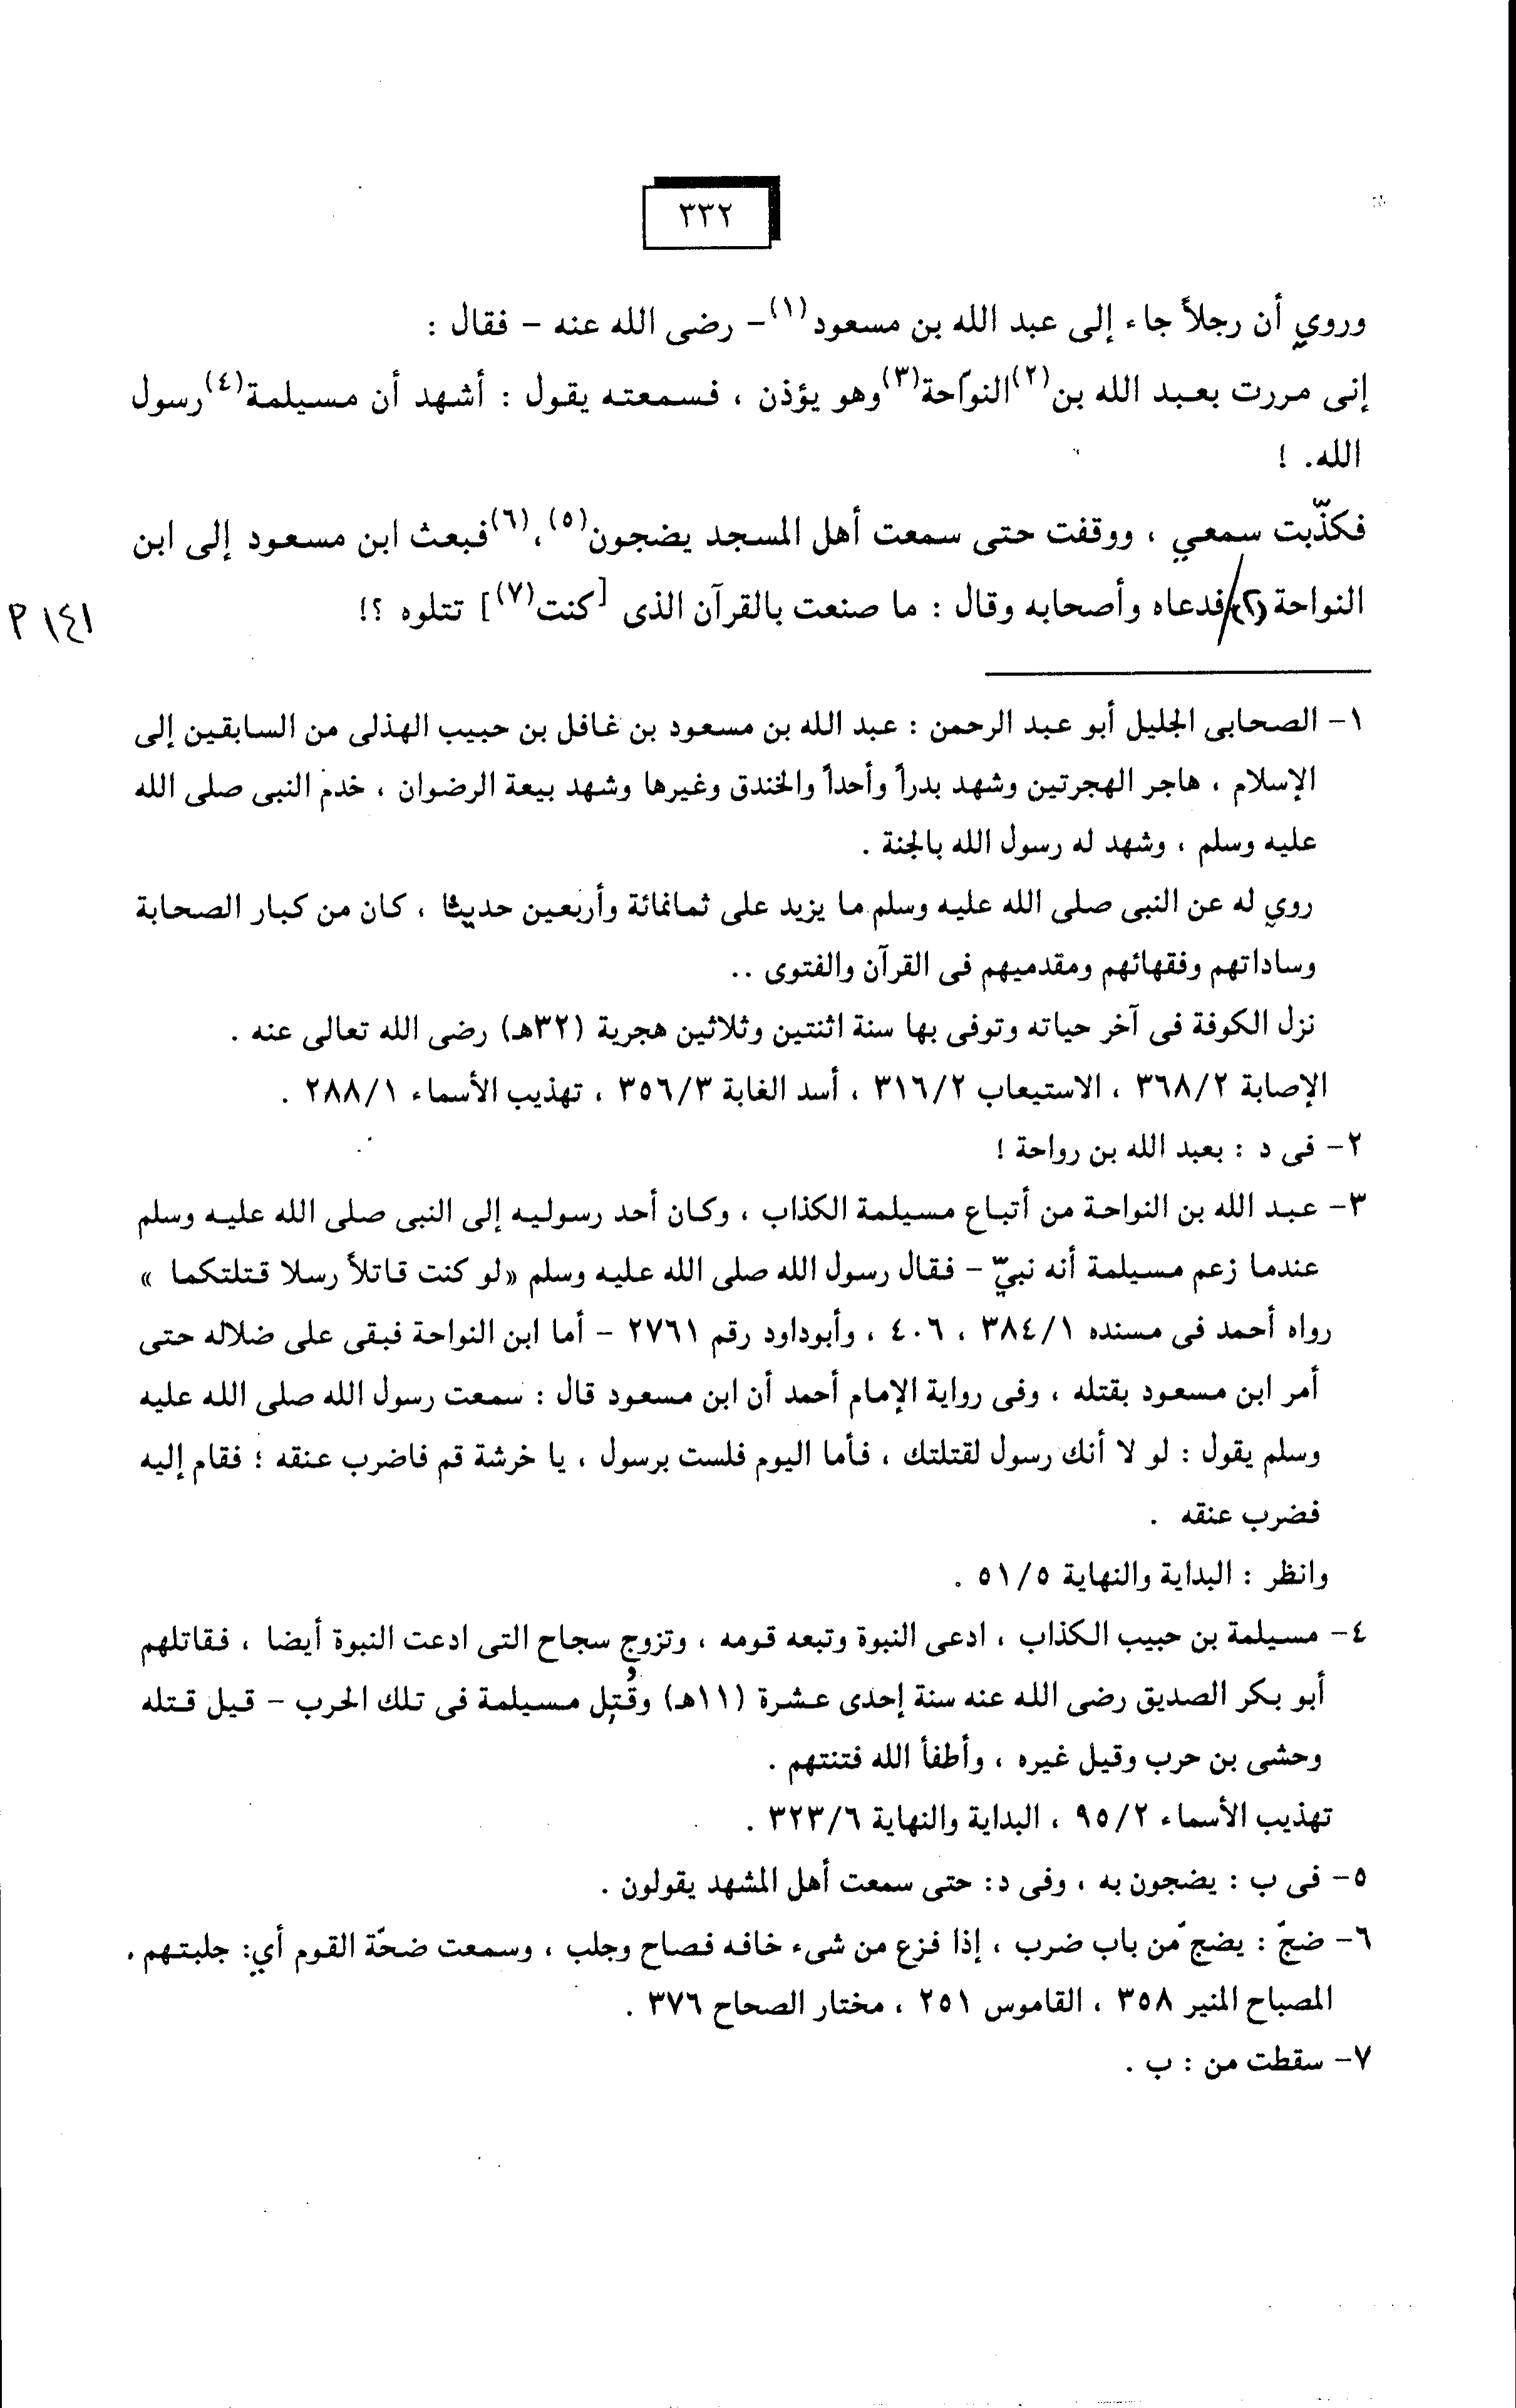 ٣٣٢
وروي أن رجلاً جاء إلى عبد الله بن مسعود(١)- رضى الله عنه - فقال :
إنى مررت بعبد الله بن(٢)النوّاحة(٣)وهو يؤذن ، فسمعته يقول : أشهد أن مسيلمة(٤)رسول
الله. !
فكذّبت سمعي ، ووقفت حتى سمعت أهل المسجد يضجون(٥)،(٦)فبعث ابن مسعود إلى ابن
النواحة (٢)/فدعاه وأصحابه وقال : ما صنعت بالقرآن الذى [كنت(٧)] تتلوه ؟!
١٤١ م
١- الصحابى الجليل أبو عبد الرحمن : عبد الله بن مسعود بن غافل بن حبيب الهذلى من السابقين إلى
الإسلام ، هاجر الهجرتين وشهد بدراً وأحداً والخندق وغيرها وشهد بيعة الرضوان ، خدم النبى صلى الله
عليه وسلم ، وشهد له رسول الله بالجنة .
روي له عن النبى صلى الله عليه وسلم ما يزيد على ثمانمائة وأربعين حديثا ، كان من كبار الصحابة
وساداتهم وفقهائهم ومقدميهم فى القرآن والفتوى ..
نزل الكوفة فى آخر حياته وتوفى بها سنة اثنتين وثلاثين هجرية (٣٢هـ) رضى الله تعالى عنه .
الإصابة ٣٦٨/٢ ، الاستيعاب ٣١٦/٢ ، أسد الغابة ٣٥٦/٣ ، تهذيب الأسماء ٢٨٨/١ .
٢- فى د : بعبد الله بن رواحة !
٣- عبد الله بن النواحة من أتباع مسيلمة الكذاب ، وكان أحد رسوليه إلى النبى صلى الله عليه وسلم
عندما زعم مسيلمة أنه نبيّ - فقال رسول الله صلى الله عليه وسلم «لو كنت قاتلاً رسلا قتلتكما »
رواه أحمد فى مسنده ٣٨٤/١ ، ٤٠٦ ، وأبوداود رقم ٢٧٦١ - أما ابن النواحة فبقى على ضلاله حتى
أمر ابن مسعود بقتله ، وفى رواية الإمام أحمد أن ابن مسعود قال : سمعت رسول الله صلى الله عليه
وسلم يقول : لو لا أنك رسول لقتلتك ، فأما اليوم فلست برسول ، يا خرشة قم فاضرب عنقه ؛ فقام إليه
فضرب عنقه .
وانظر : البداية والنهاية ٥١/٥ .
٤- مسيلمة بن حبيب الكذاب ، ادعى النبوة وتبعه قومه ، وتزوج سجاح التى ادعت النبوة أيضا ، فقاتلهم
أبو بكر الصديق رضى الله عنه سنة إحدى عشرة (١١هـ) وقُتِل مسيلمة فى تلك الحرب - قيل قتله
وحشى بن حرب وقيل غيره ، وأطفأ الله فتنتهم .
تهذيب الأسماء ٩٥/٢ ، البداية والنهاية ٣٢٣/٦ .
٥- فى ب : يضجون به ، وفى د: حتى سمعت أهل المشهد يقولون .
٦- ضجّ : يضجّ من باب ضرب ، إذا فزع من شىء خافه فصاح وجلب ، وسمعت ضجّة القوم أي: جلبتهم .
المصباح المنير ٣٥٨ ، القاموس ٢٥١ ، مختار الصحاح ٣٧٦ .
٧- سقطت من : ب .